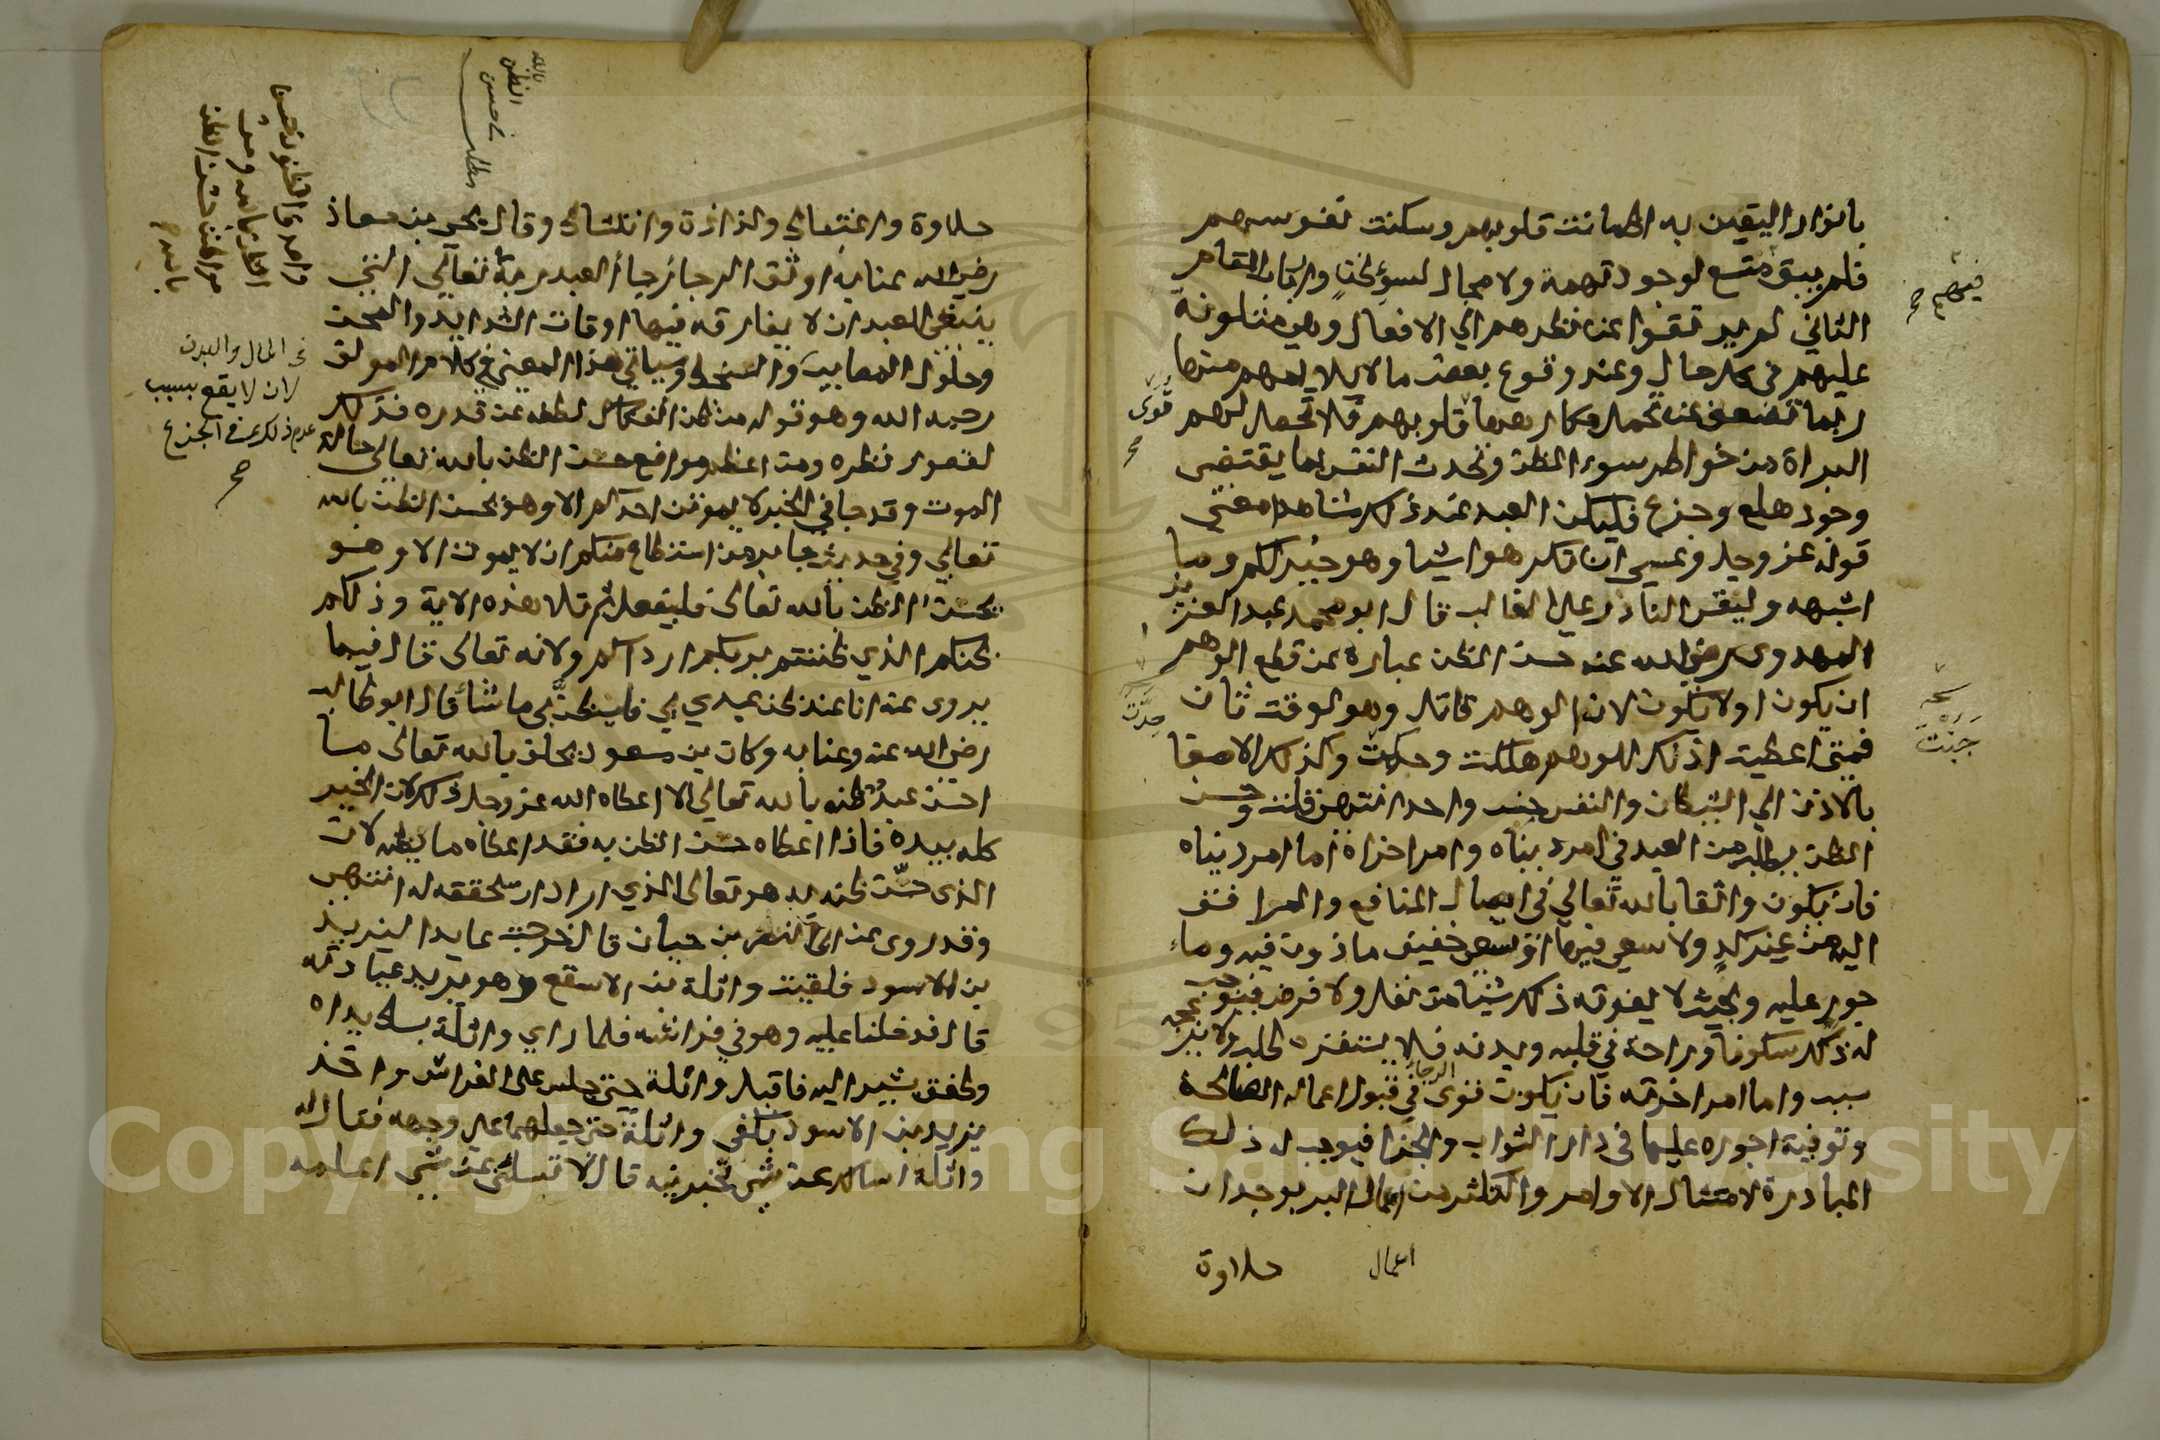 بانوار اليقين به اطمانت قلوبهم وسكنت نفوسهم
فلم يبق متسع لوجود تهمة ولا مجال لسوء ظن وارباب المقام
الثاني لم يرتقوا عن نظرهم الي الافعال وهي متلونة
عليهم في كل حال وعند وقوع بعض ما لا يلايمهم منها
ربما تضعف عن تحمل مكارهها قلوبهم فلا تحصل لهم
البراة من خواطر سوء الظن وتحدث النفس بما يقتضي
وجود هلع وجزع فليكن العبد عند ذلك مشاهدا معني
قوله عز وجل وعسي ان تكرهوا شيا وهو خير لكم وما
اشبهه وليقس النادر علي الغالب قال ابو محمد عبد العزيز
المهدوي رضي الله عنه حسن الظن عبارة عن قطع الوهم
ان يكون او لا يكون لان الوهم قاتل وهو لوقت ثان
فمتي اعطيت اذنك للوهم هلكت وحكت وكذلك الاصغا
بالاذن الي الشيطان والنفس جنس واحد انتهى قلت وحسن
الظن يطلب من العبد في امر دنياه وامر اخراه اما امر دنياه
فان يكون واثقا بالله تعالي في ايصال المنافع والمرافق
اليه من غير كد ولا سعي فيها او سعي خفيف ماذون فيه وما
جور عليه وبحيث لا يفوته ذلك شيا من نفل ولا فرض فيوجب
له ذلك سكونا وراحة في قلبه وبدنه فلا يستفزه طلب ولا يزعجه
سبب واما امر اخرته فان يكون قوي الرجا في قبول اعماله الصالحة
وتوفية اجوره عليها في دار الثواب والجزا فيوجب له ذلك
المبادرة لامتثال الاوامر والتكثر من اعمال البر بوجدان
اعمال
حلاوة
فيهم صح
قوى
صح
نسخه
جننت
حلاوة واغتباط ولذاذة وانتشاط وقال يحي بن معاذ
رضي الله عنا به اوثق الرجا رجا العبد ربه تعالي التي
ينبغي للعبد ان لا يفارقه فيها اوقات الشدايد والمحن
وحلول المصايب والسخط وسياتي هذا المعني في كلام المولف
رحمه الله وهو قوله من ظن انفكاك لطفه عن قدره فذلك
لقصور نظره ومن اعظم مواضع حسن الظن بالله تعالي حالة
الموت وقد جا في الخبر لا يموتن احدكم الا وهو يحسن الظن بالله
تعالي وفي حديث جابر من استطاع منكم ان لا يموت الا وهو
يحسن الظن بالله تعالى فليفعل ثم تلا هذه الاية وذلكم
ظنكم الذي ظننتم بربكم ارداكم ولانه تعالى قال فيما
يروى عنه انا عند ظن عبدي بي فليظن بي ما شا قال ابو طالب
رضي الله عنه وعنا به وكان بن مسعود يحلف بالله تعالى ما
احسن عبد ظنه بالله تعالي الا اعطاه الله عز وجل ذلك لان الخير
كله بيده فاذا اعطاه حسن الظن به فقد اعطاه ما يظنه لان
الذى حسن ظنه به هو تعالى الذي اراد ان يحققه له انتهى
وقد روى عن ابي النضر بن حيان قال خرجت عايدا ليزيد
بن الاسود فلقيت واثلة بن الاسقع وهو يريد عيادته
قال فدخلنا عليه وهو في فراشه فلما راي واثلة بسط يداه
وطفق يشير اليه فاقبل واثلة حتي جلس على الفراش واخذ
يزيد بن الاسود بكفي واثلة حتي جعلهما علي وجهه فقال له
واثلة اسالك عن شي تخبرنيه قال لا تسلني عن شي اعلمه
مطلب
حسن
الظن
بالله
في المال والبدن
لان لا يقع بسبب
عدم ذلك في الجزع
صح